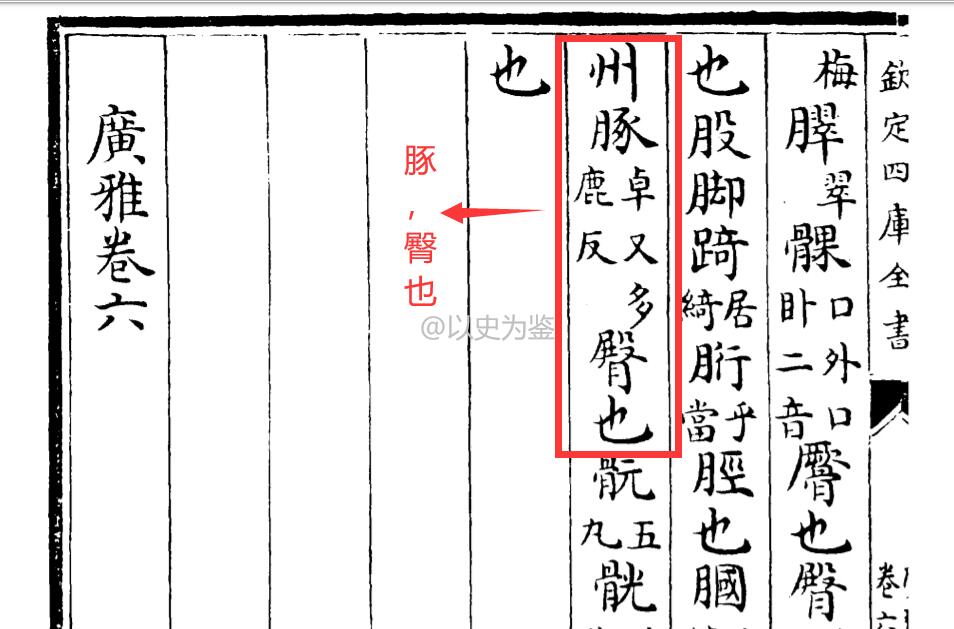 欽定四庫全書
卷六
梅臎翠髁口外口卧二音也臀
也股脚踦居綺胻乎當脛也膕
州豚卓又多鹿反臀也五丸
也
廣雅卷六
豚，臀也
@以史为鉴